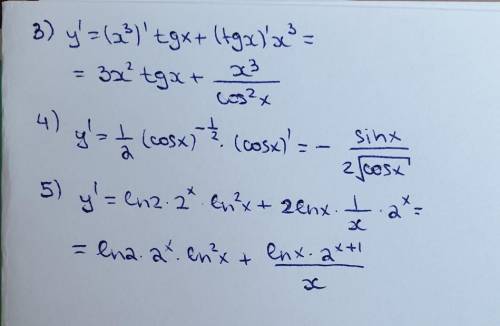 3) y' = (x³)' tgx + (tgx)' x³ =
= 3x² tgx + x³/cos²x
4) y' = 1/2 (cosx)^(-1/2) · (cosx)' = - sinx/(2√cosx)
5) y' = ln2 · 2ˣ · ln²x + 2lnx · 1/x · 2ˣ =
= ln2 · 2ˣ · ln²x + (lnx · 2ˣ⁺¹)/x